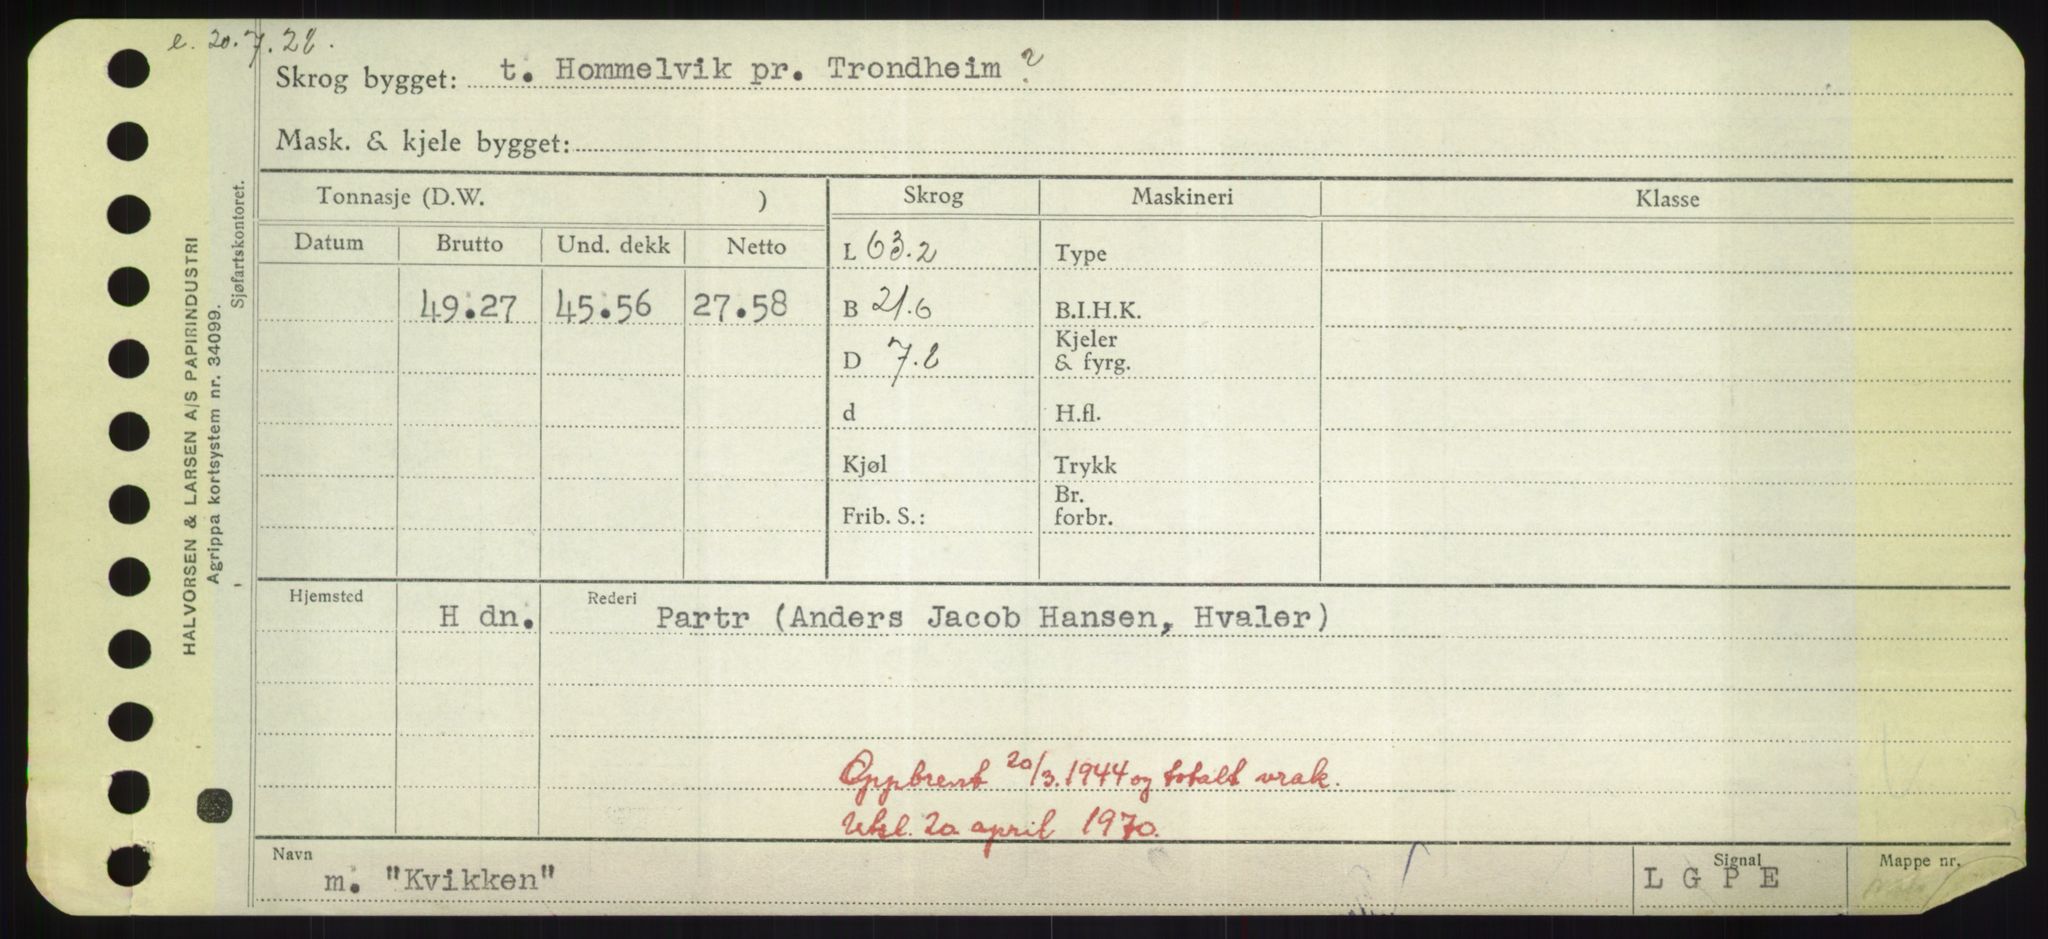 e. 20.7.28.
Skrog bygget: t. Hommelvik pr. Trondheim ?
Mask. & kjele bygget:
Tonnasje (D.W. ) Skrog Maskineri Klasse
Datum Brutto Und. dekk Netto L 63.2 Type
49.27 45.56 27.58 B 21.6 B.I.H.K.
D 7.8 Kjeler & fyrg.
d H.fl.
Kjøl Trykk
Frib. S.: Br. forbr.
Hjemsted H dn. Rederi Partr (Anders Jacob Hansen, Hvaler)
Oppbrent 20/3.1944 og totalt vrak.
Utsl. 20 april 1970.
Navn m. "Kvikken" Signal L G P E Mappe nr.
HALVORSEN & LARSEN A/S PAPIRINDUSTRI
Agrippa kortsystem nr. 34099.
Sjøfartskontoret.